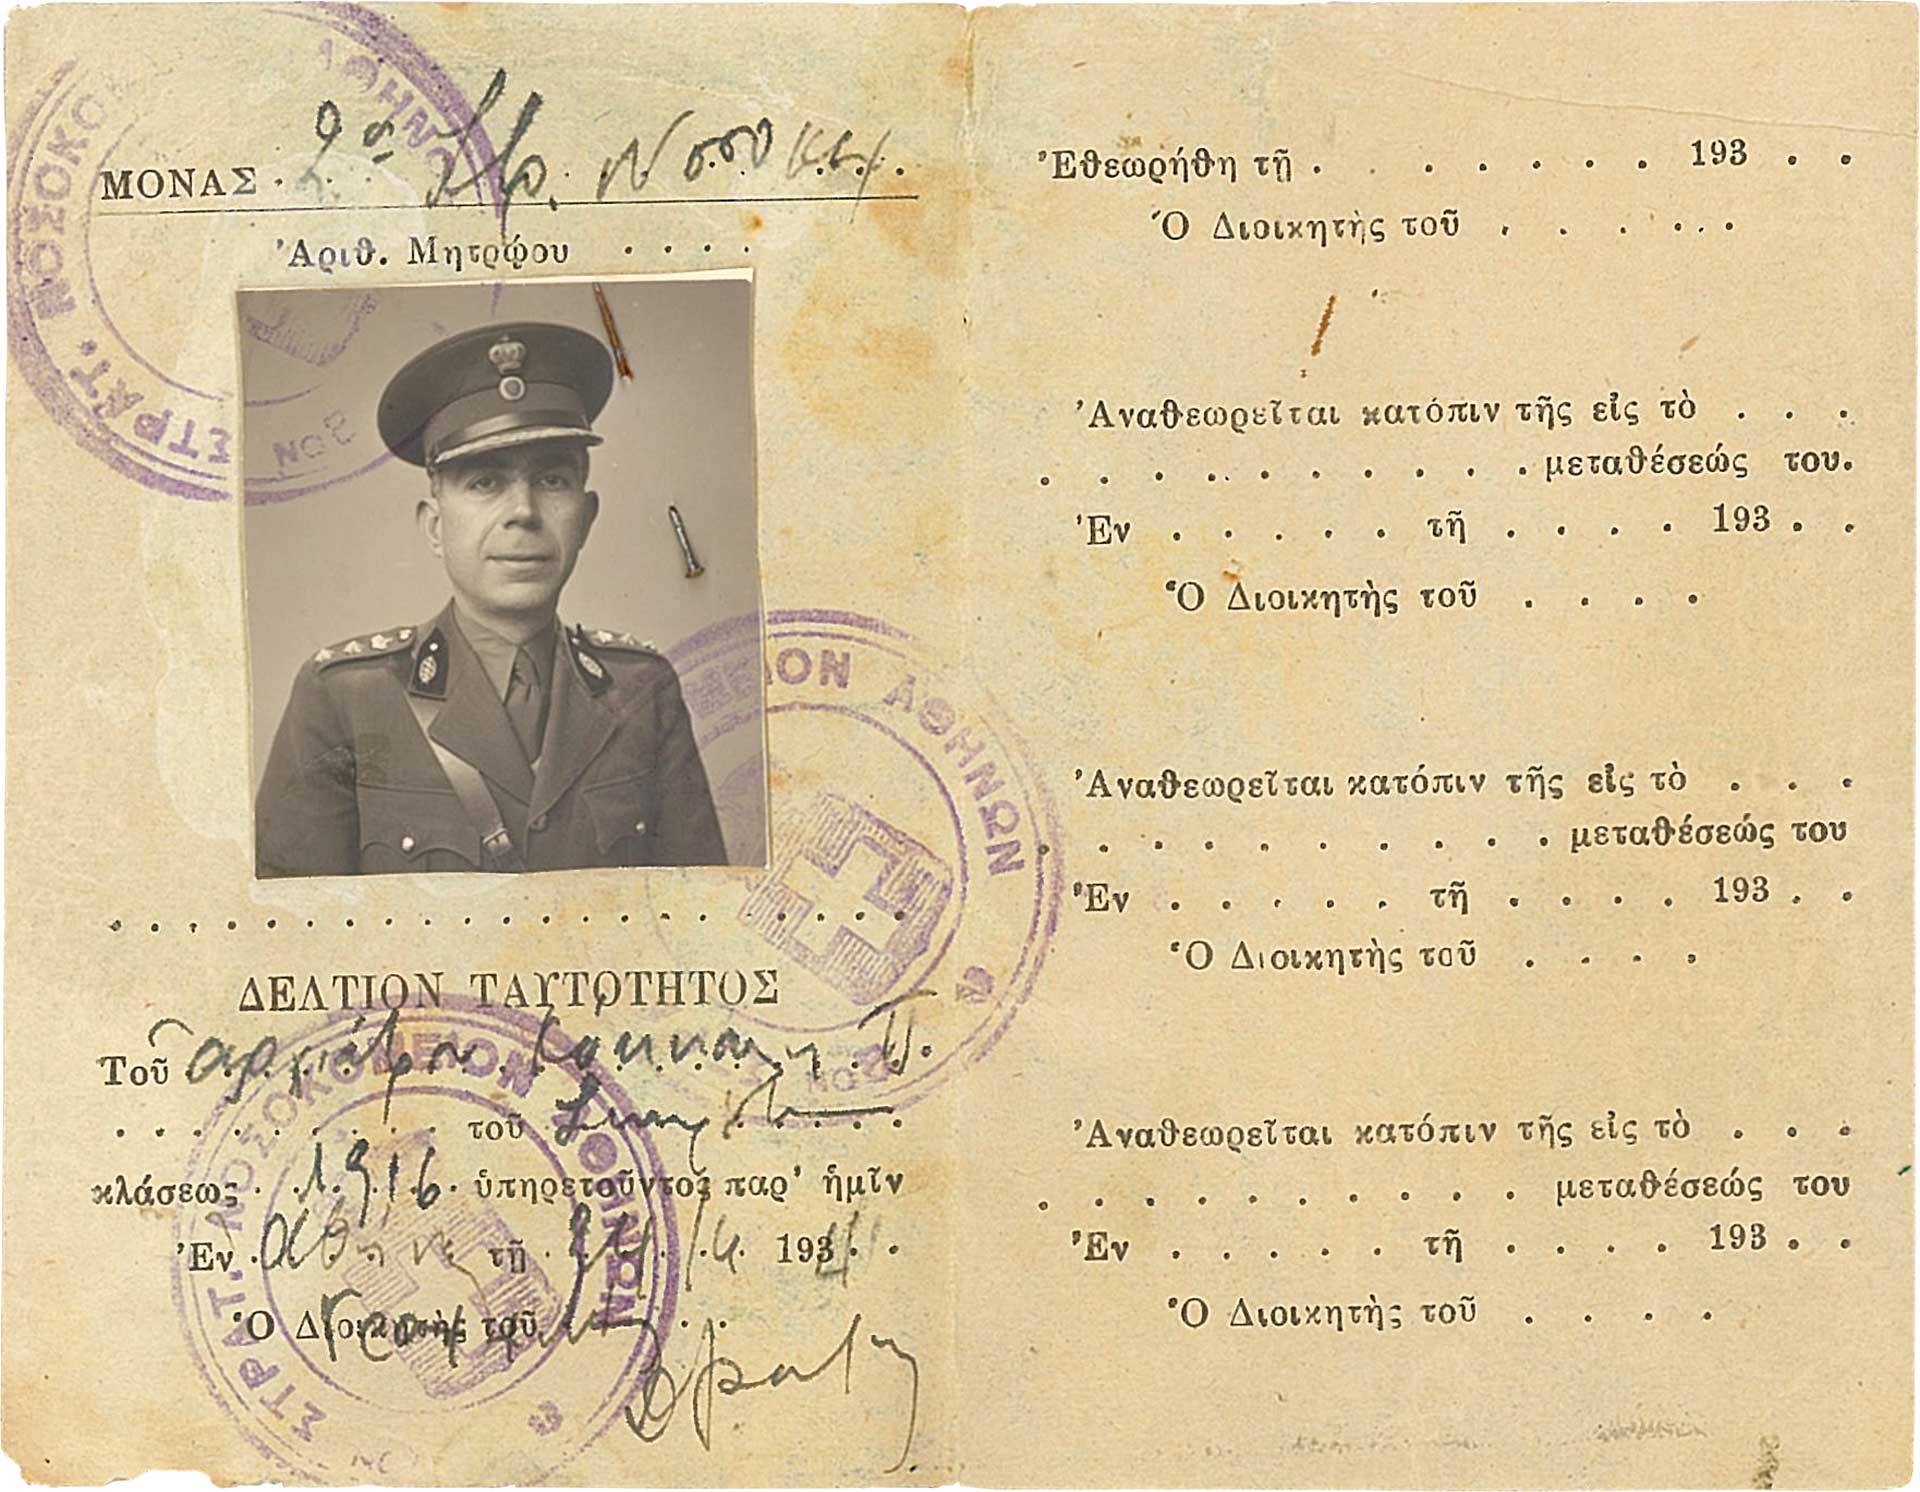 ΜΟΝΑΣ 2ον Στρ. Νοσοκ
Ἀριθ. Μητρῴου . . . .
ΣΤΡΑΤ. ΝΟΣΟΚΟ ΑΘΗΝΩ
2ΟΝ
ΑΘΗΝΩΝ
ΔΕΛΤΙΟΝ ΤΑΥΤΟΤΗΤΟΣ
Τοῦ ἀρχιάτρου Π.
. . . . . . . . . τοῦ
κλάσεως 1916 ὑπηρετοῦντος παρ' ἡμῖν
Ἐν Ἀθήναις τῇ 24/4 1934
Ὁ Διοικητὴς τοῦ
ΣΤΡΑΤ. ΝΟΣΟΚΟΜΕΙΟΝ ΑΘΗΝΩΝ
Ἐθεωρήθη τῇ . . . . . . . 193 . .
Ὁ Διοικητὴς τοῦ . . . . . .
Ἀναθεωρεῖται κατόπιν τῆς εἰς τὸ . . .
. . . . . . . . . μεταθέσεώς του.
Ἐν . . . . . τῇ . . . . 193 . .
Ὁ Διοικητὴς τοῦ . . . .
Ἀναθεωρεῖται κατόπιν τῆς εἰς τὸ . . .
. . . . . . . . . . μεταθέσεώς του
Ἐν . . . . . τῇ . . . . 193 . .
Ὁ Διοικητὴς τοῦ . . . .
Ἀναθεωρεῖται κατόπιν τῆς εἰς τὸ . . .
. . . . . . . . . μεταθέσεώς του
Ἐν . . . . . τῇ . . . . 193 . .
Ὁ Διοικητὴς τοῦ . . . .